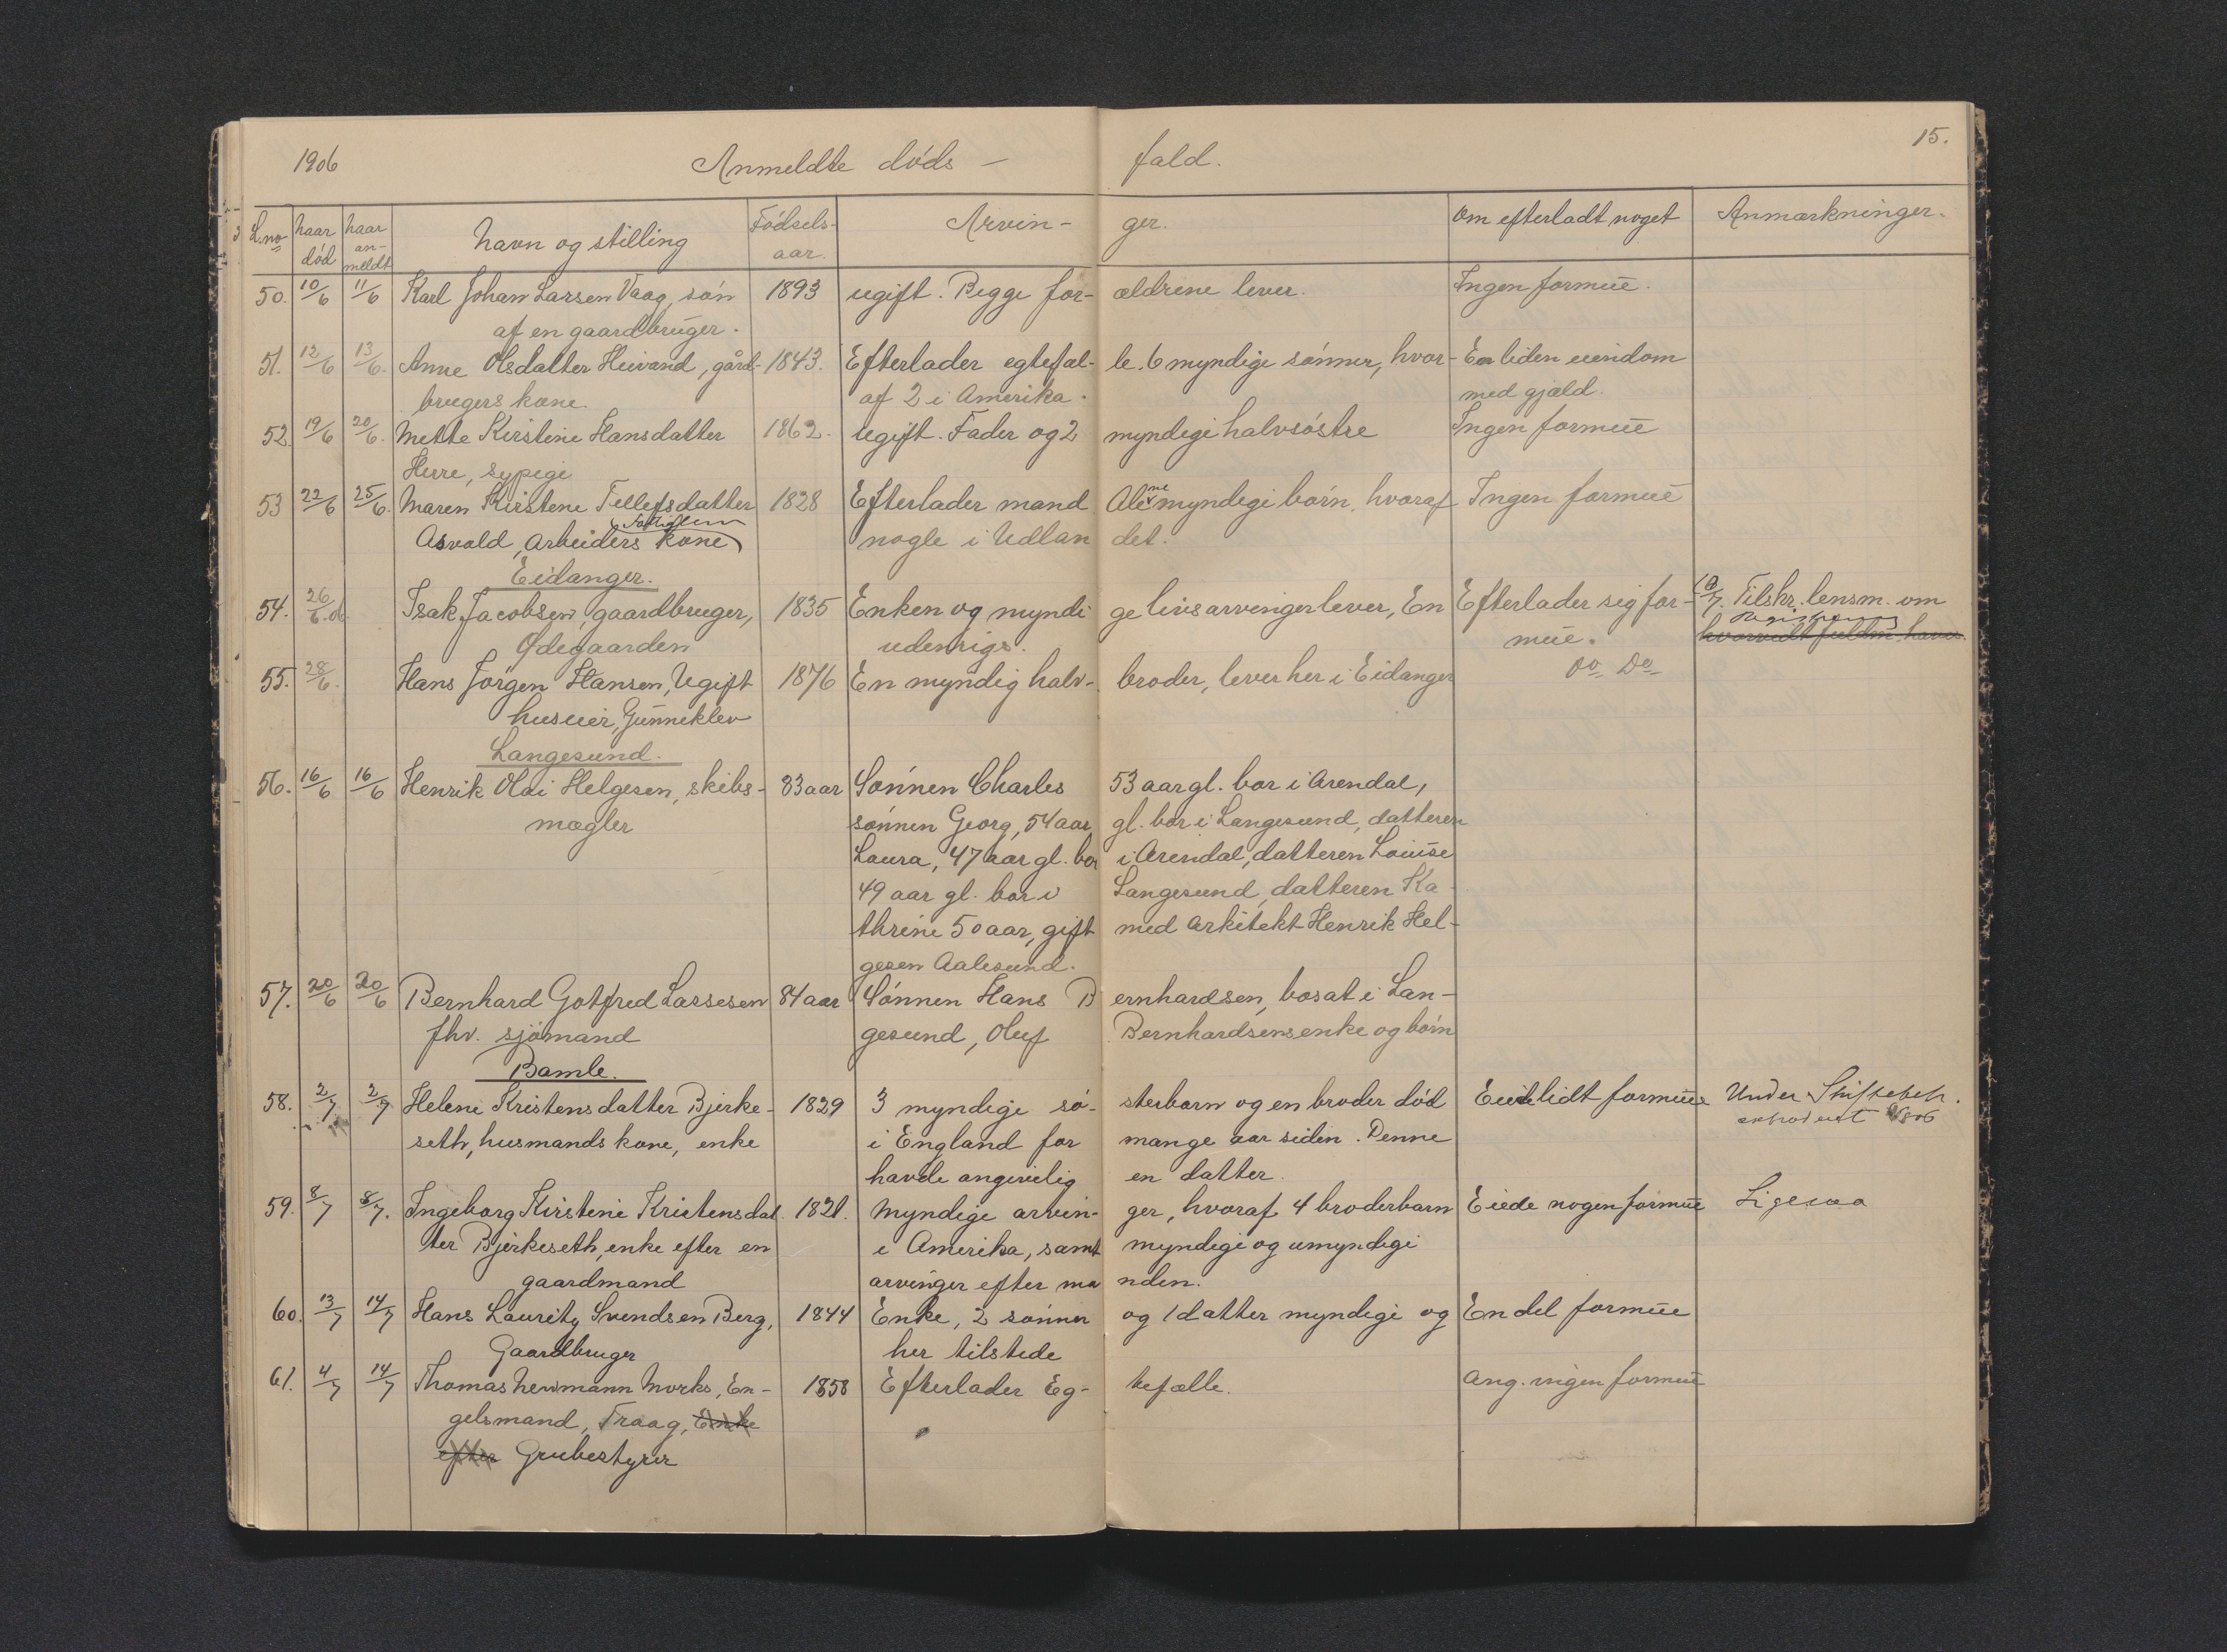 1906 Anmeldte døds – fald. 15.
L.no Naar død Naar anmeldt Navn og stilling Fødselsaar. Arvin- ger. Om efterladt noget Anmærkninger.
50. 10/6 11/6 Karl Johan Larsen Vaag, søn 1893 ugift. Begge for- ældrene lever. Ingen formue.
af en gaardbruger.
51. 12/6 13/6. Anne Olsdatter Heivand, gård- 1843. Efterlader egtefæl- le. 6 myndige sønner, hvor- En liden eiendom
brugers kone af 2 i Amerika. med gjæld.
52. 19/6 20/6. Mette Kirstine Hansdatter 1862. Ugift. Fader og 2 myndige halvsøstre Ingen formue
Herre, sypige
53 22/6 25/6. Maren Kirstene Tellefsdatter 1828 Efterlader mand Alene myndige børn, hvoraf Ingen formue
Asvold, Arbeiders kone nogle i Udlan det.
Eidanger.
54. 26/6. d. Isak Jacobsen, gaardbruger, 1835 Enken og myndi ge livsarvinger lever, En Efterlader sig for- 10/7. Tilskr. lensm. om
Ødegaarden udenrigs. mue. Registrering
hvorvidt fuldm. haves.
55. 28/6. Hans Jørgen Hansen, Ugift 1876 En myndig halv- broder, lever her i Eidanger Do Do
huseier, Gunneklev
Langesund.
56. 16/6 16/6 Henrik Olai Helgesen, skibs- 83 aar Sønnen Charles 53 aar gl. bor i Arendal,
mægler sønnen Georg, 54 aar gl. bor i Langesund, datteren
Laura, 47 aar gl. bor i Arendal, datteren Louise
49 aar gl. bor i Langesund, datteren Ka-
thrine 50 aar, gift med Arkitekt Henrik Hel-
gesen Aalesund.
57. 20/6 20/6 Bernhard Gotfred Lassesen 84 aar Sønnen Hans B ernhardsen, bosat i Lan-
fhv. sjømand gesund, Oluf Bernhardsens enke og børn
Bamle.
58. 2/7 2/7 Helene Kristensdatter Bjerke- 1829 3 myndige sø- sterbarn og en broder død Eied lidt formue Under Skiftebeh.
seth, husmands kone, enke i England for mange aar siden. Denne
havde angivelig en datter.
59. 8/7 8/7. Ingeborg Kirstine Kristensdat 1821. Myndige arvin- ger, hvoraf 4 broderbarn Eiede nogen formue Ligesaa
ter Bjerkeseth, enke efter en i Amerika, samt myndige og umyndige
gaardmand arvinger efter ma nden.
60. 13/7 14/7 Hans Lauritz Svendsen Berg, 1844 Enke, 2 sønner og 1 datter myndige og En del formue
Gaardbruger her tilstede
61. 4/7 14/7 Thomas Newmann Morks, En- 1858 Efterlader Eg- tefælle. Ang. ingen formue
gelsmand, Traag, Enke
efter Grubestyrer